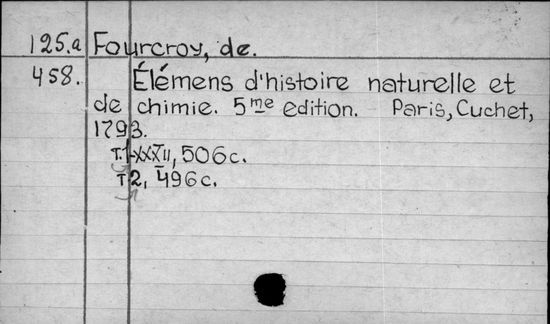 125.a Fourcroy, de.
458. Élémens d'histoire naturelle et
de chimie. 5me edition. Paris, Cuchet,
1793.
T.1-XXXII, 506 c.
T.2, 496 c.